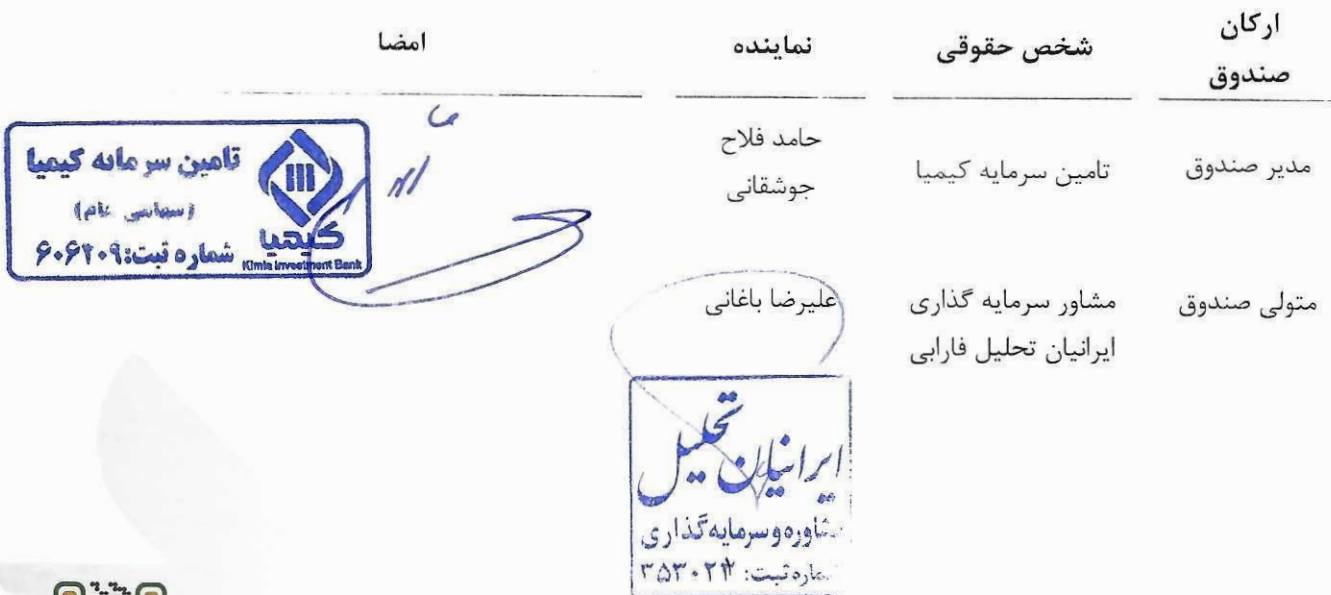 ارکان
صندوق
شخص حقوقی
نماینده
امضا
مدیر صندوق
تامین سرمایه کیمیا
حامد فلاح
جوشقانی
تامین سرمایه کیمیا
(سهامی عام)
شماره ثبت: ۶۰۶۲۰۹
کیمیا
Kimia Investment Bank
متولی صندوق
مشاور سرمایه گذاری
ایرانیان تحلیل فارابی
علیرضا باغانی
ایرانیان تحلیل
مشاوره و سرمایه گذاری
شماره ثبت: